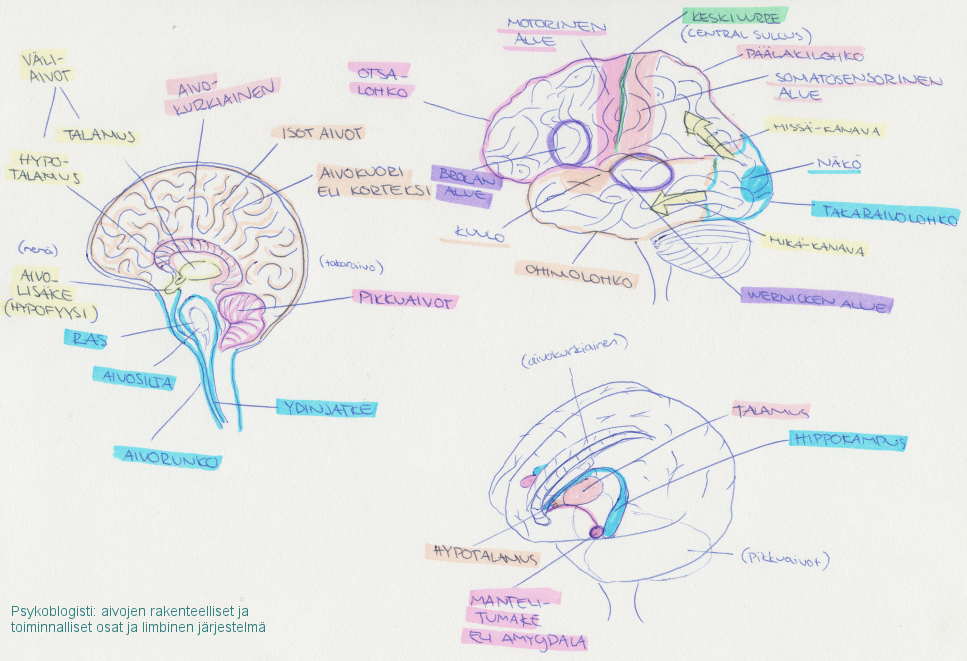 VÄLI-
AIVOT
TALAMUS
HYPO-
TALAMUS
(nenä)
AIVO-
LISÄKE
(HYPOFYYSI)
RAS
AIVOSILTA
AIVORUNKO
YDINJATKE
AIVO-
KURKIAINEN
ISOT AIVOT
AIVOKUORI
ELI KORTEKSI
(takaraivo)
PIKKUAIVOT
MOTORINEN
ALUE
OTSA-
LOHKO
BROCAN
ALUE
KUULO
OHIMOLOHKO
KESKIUURRE
(CENTRAL SULCUS)
PÄÄLAKILOHKO
SOMATOSENSORINEN
ALUE
MISSÄ-KANAVA
NÄKÖ
TAKARAIVOLOHKO
MIKÄ-KANAVA
WERNICKEN ALUE
(aivokurkiainen)
TALAMUS
HIPPOKAMPUS
HYPOTALAMUS
(pikkuaivot)
MANTELI-
TUMAKE
ELI AMYGDALA
Psykoblogisti: aivojen rakenteelliset ja
toiminnalliset osat ja limbinen järjestelmä